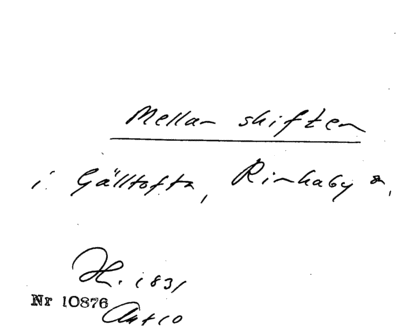 Mellan skiften
i Gälltofta, Rinkaby s.
H. 1831
Nr 10876